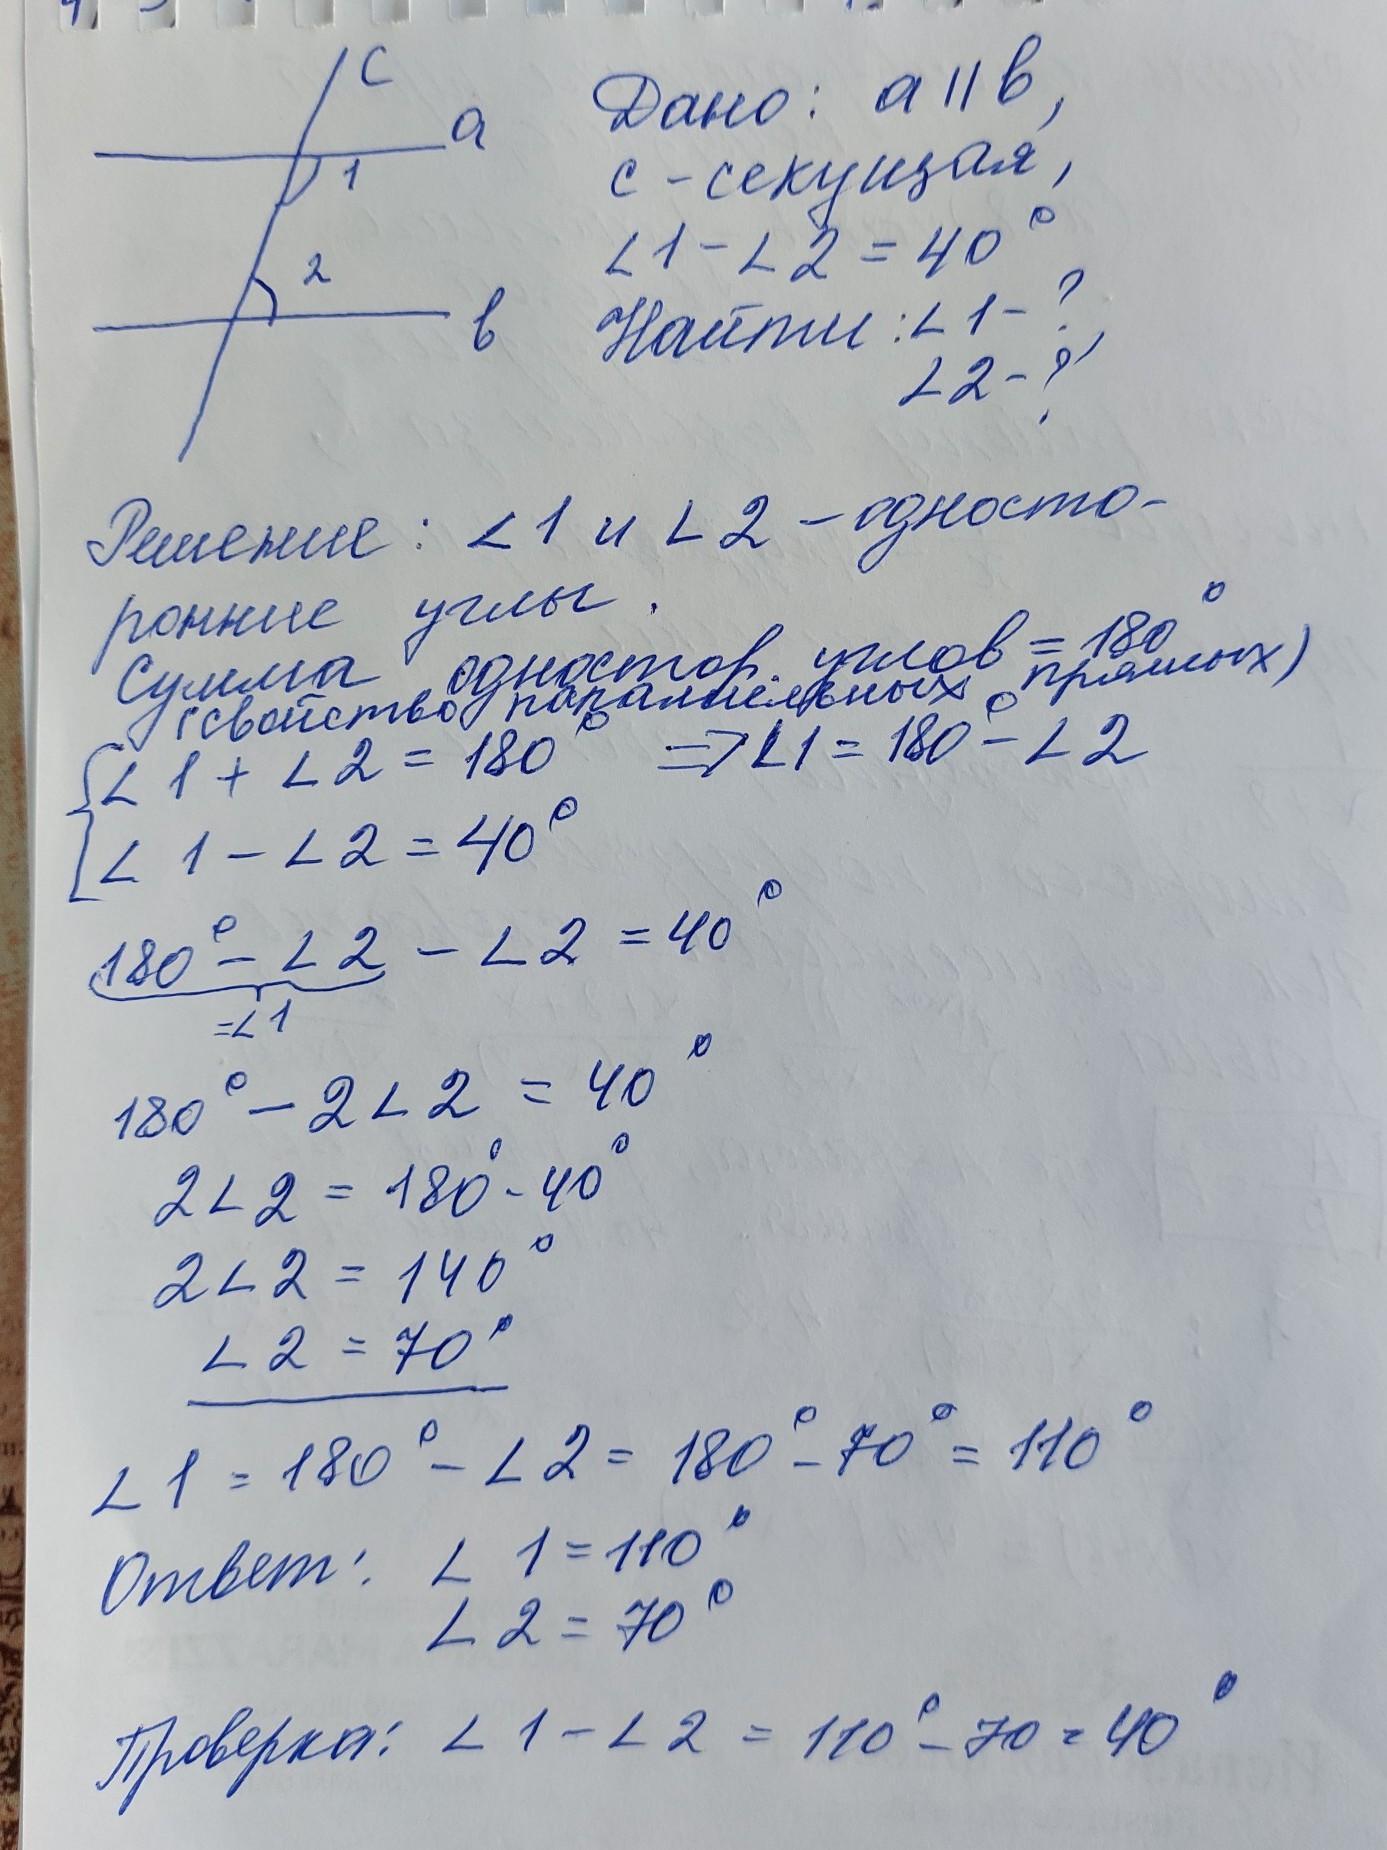 c
a
1
2
b
Дано: a || b,
c - секущая,
∠1 - ∠2 = 40°
Найти: ∠1 - ?,
∠2 - ?
Решение: ∠1 и ∠2 - односто-
ронние углы.
Сумма одностор. углов = 180°
(свойство параллельных прямых)
∠1 + ∠2 = 180° => ∠1 = 180° - ∠2
∠1 - ∠2 = 40°
180° - ∠2 - ∠2 = 40°
= ∠1
180° - 2∠2 = 40°
2∠2 = 180° - 40°
2∠2 = 140°
∠2 = 70°
∠1 = 180° - ∠2 = 180° - 70° = 110°
Ответ: ∠1 = 110°
∠2 = 70°
Проверка: ∠1 - ∠2 = 110° - 70 = 40°